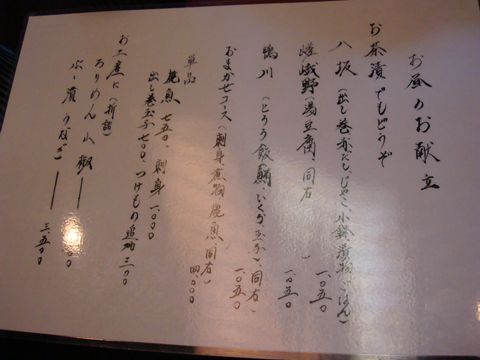 お昼のお献立
お茶漬でもどうぞ
八坂(出し巻赤だし、じゃこ、小鉢漬物、ごはん)
一、〇五〇
嵯峨野(湯豆腐、同右)
一、〇五〇
鴨川(とろろ飯、いくら、玉子、同右)
一、〇五〇
おまかせコース(刺身煮物焼魚同右)
四、〇〇〇
単品
焼魚 七五〇、刺身 一、〇〇〇
出し巻玉子 七〇〇、つけもの追加 三〇〇
お土産に(折詰)
ちりめん山椒
ぶぶ漬うなぎ 三、五〇〇